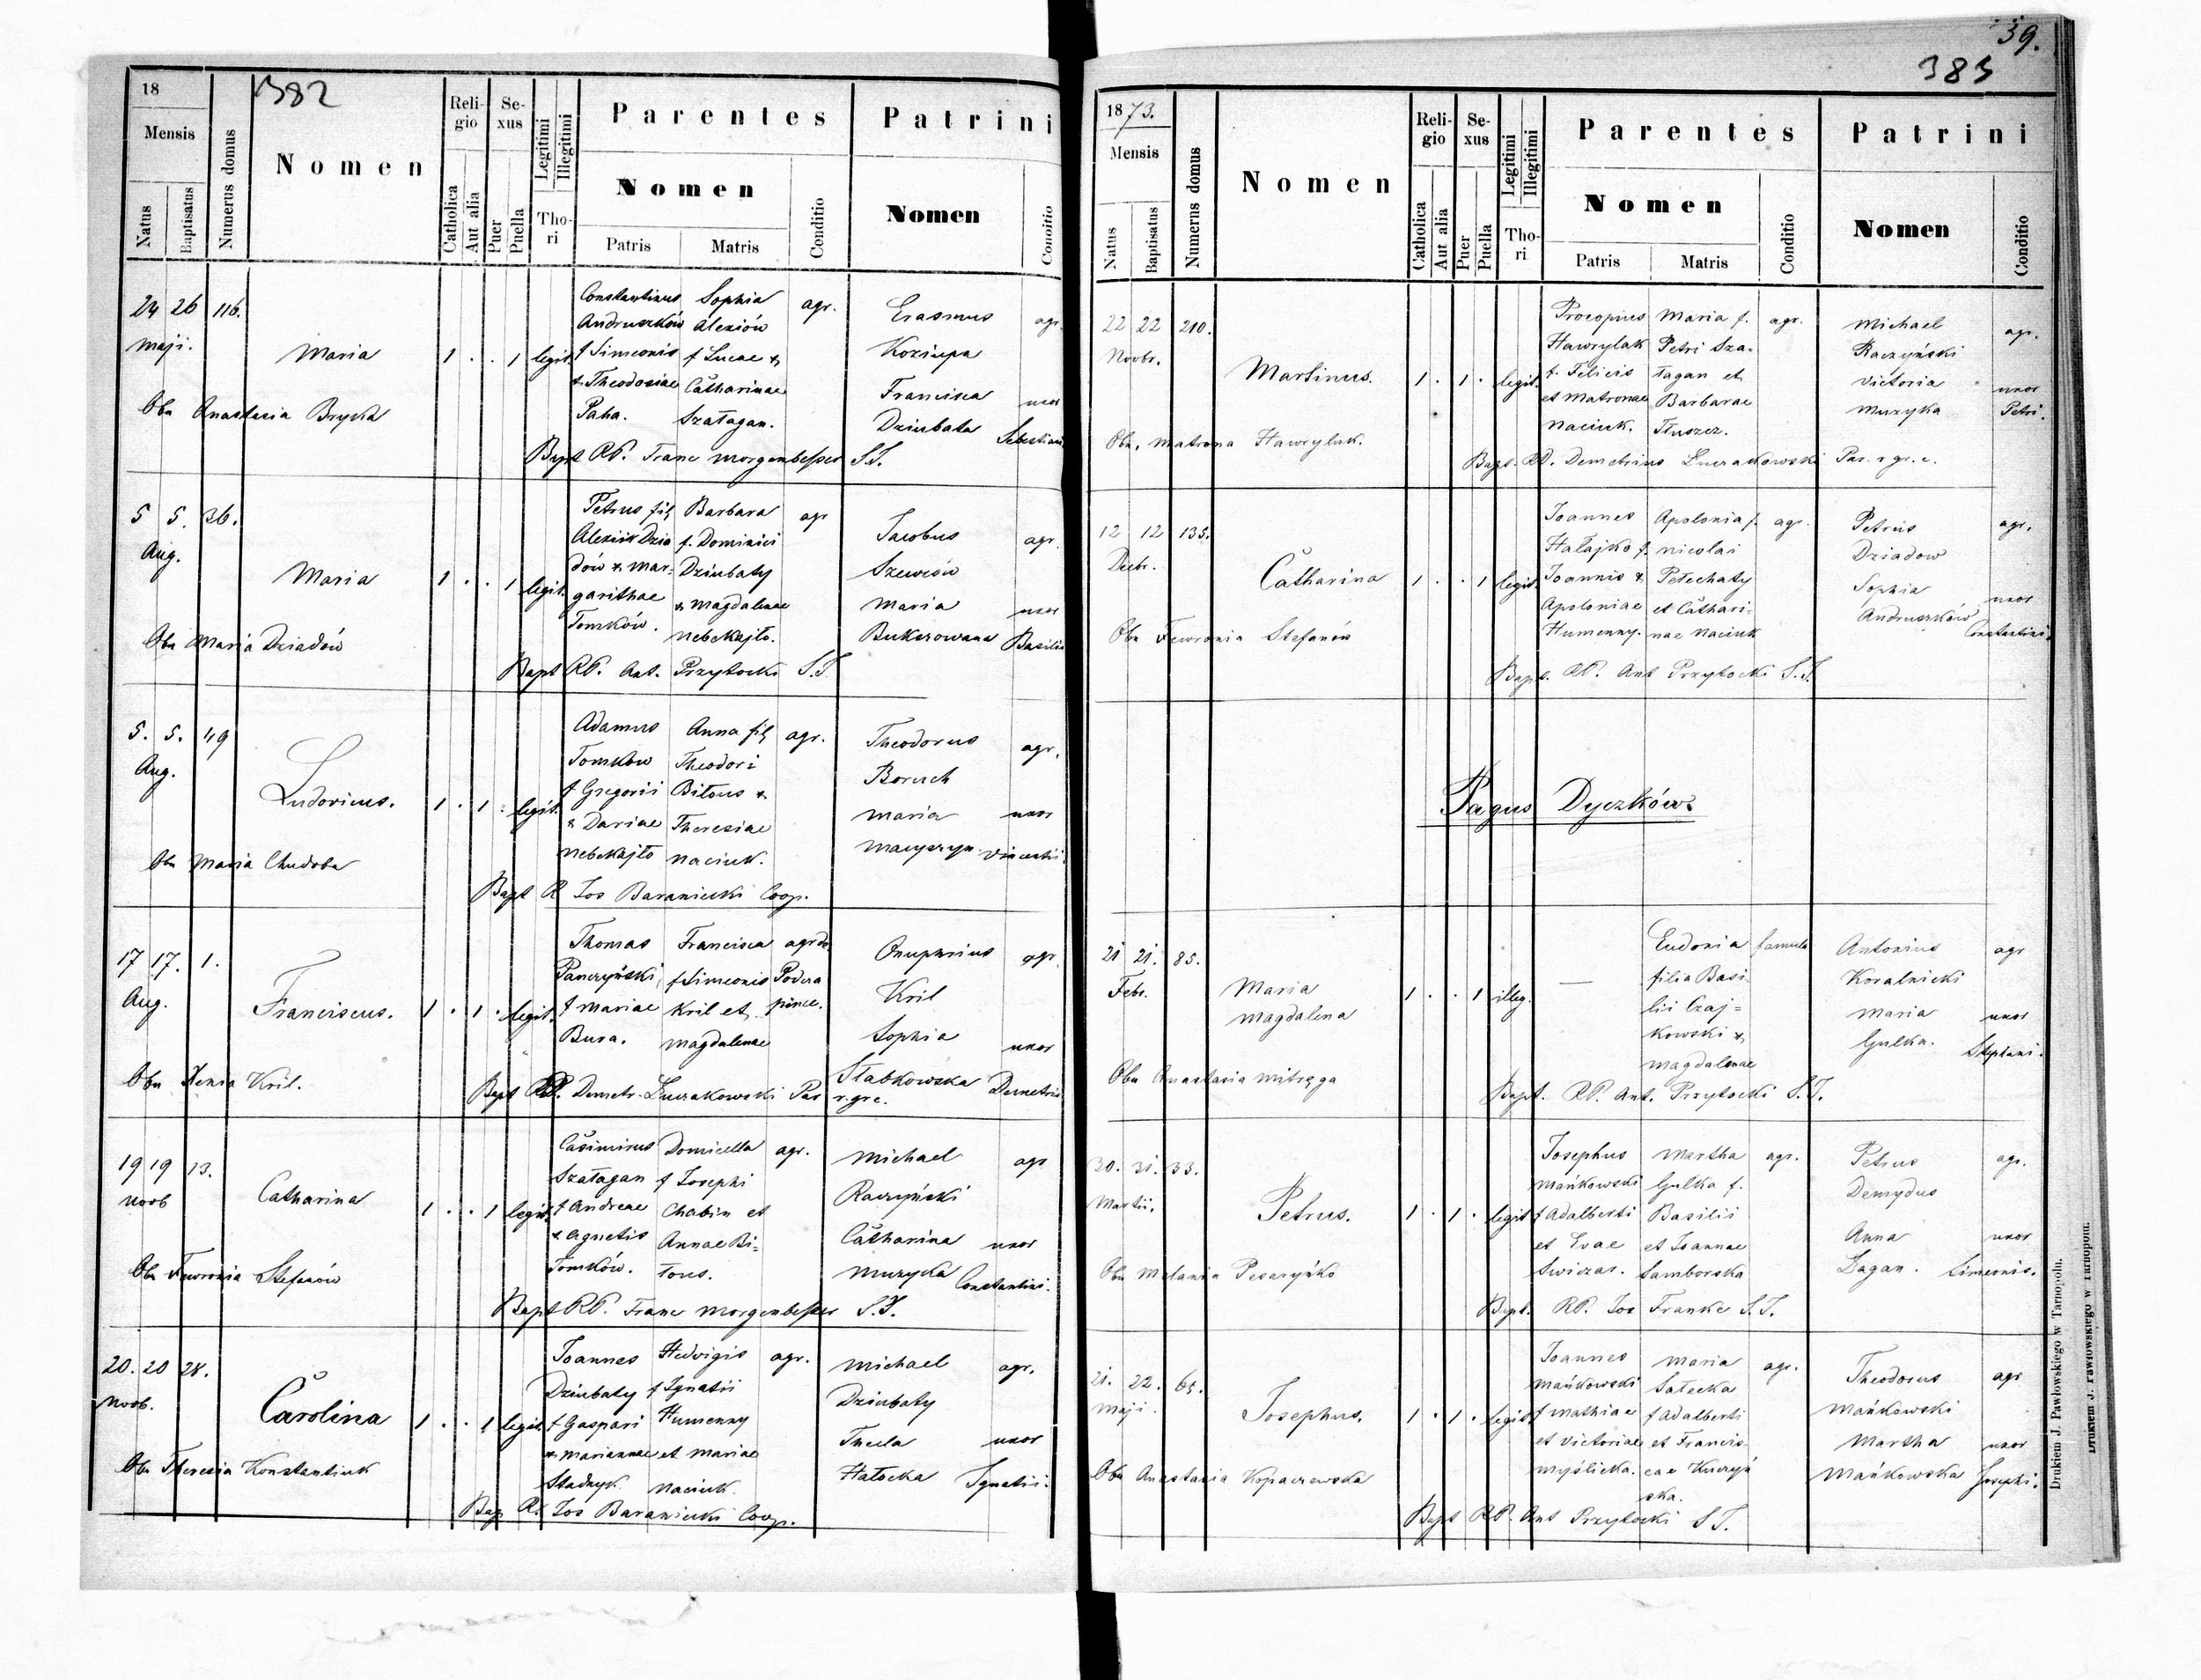 18
382
Mensis
Natus
Baptisatus
Numerus domus
Nomen
Religio
Catholica
Aut alia
Sexus
Puer
Puella
Legitimi
Illegitimi
Thori
Parentes
Nomen
Patris
Matris
Conditio
Patrini
Nomen
Conditio
24 26 116.
Maji.
Maria
1 . . 1 legit.
Constantinus
Andruszków
f Simeonis
& Theodosiae
Paha.
Sophia
Alexiów
f Lucae &
Catharinae
Szałagan.
agr.
Erasmus agr.
Koziupa
Francisca uxor
Dziubata Sebastiani
Obs Anastasia Bryka
Bapt RP. Franc Morgenbesser S.J.
5 5. 36.
Aug.
Maria
1 . . 1 legit.
Petrus fil
Alexii Dzia
dów & Mar-
garithae
Tomków.
Barbara
f. Dominici
Dziubaty
& Magdalenae
Nebekajło.
agr
Jacobus agr.
Szewców
Maria uxor
Bukszowana Basilii
Obs Maria Dziadów
Bapt RP. Ant. Przytocki S.J.
5. 5. 49
Aug.
Ludovicus.
1 . 1 . legit.
Adamus
Tomków
f Gregorii
& Dariae
Nebekajło
Anna fil
Theodori
Bitous &
Theresiae
Naciuk.
agr.
Theodorus agr.
Boruch
Maria uxor
Macyszyn Vincentii
Obs Maria Chudoba
Bapt R Jos Baraniecki Coop.
17 17. 1.
Aug.
Franciscus.
1 . 1 . legit.
Thomas
Panczyński
f Mariae
Bura.
Francisca
f Simeonis
Kril et
Magdalenae
agr de
Podera
Onuphrius agr.
Kril
Sophia uxor
Słabkowska Demetrii
Obs Xenia Kril.
Bapt RP. Demetr. Łuczakowski Par r. gr c.
19 19 13.
Noob
Catharina
1 . . 1 legit.
Casimirus
Szałagan
f Andreae
& Agnetis
Tomków.
Domicella
f Josephi
Chabin et
Annae Bi-
tous.
agr.
Michael agr
Raczyński
Catharina uxor
Muzyka Constantini.
Obs Fewronia Stefanów
Bapt RP. Franc Morgenbesser S.J.
20. 20 28.
Noob.
Carolina
1 . . 1 legit.
Joannes
Dziubaty
f Gaspari
& Mariannae
Stadnyk.
Hedvigis
f Ignatii
Humenny
et Mariae
Naciuk.
agr.
Michael agr.
Dziubaty
Thecla uxor
Hałecka Ignatii.
Obs Theresia Konstantiuk
Bap R. Jos Baraniecki Coop.
39.
383
1873.
Mensis
Natus
Baptisatus
Numerus domus
Nomen
Religio
Catholica
Aut alia
Sexus
Puer
Puella
Legitimi
Illegitimi
Thori
Parentes
Nomen
Patris
Matris
Conditio
Patrini
Nomen
Conditio
22 22 210.
Novbr.
Martinus.
1 . 1 . legit.
Procopius
Hawrylak
f. Felicis
et Matronae
Naciuk.
Maria f.
Petri Sza-
łagan et
Barbarae
Tłuszcz.
agr.
Michael agr.
Raczyński
Victoria uxor
Muzyka Petri.
Obs. Matrona Hawryluk.
Bapt. RP. Demetrius Łuczakowski Par. r gr. c.
12 12 135.
Decbr.
Catharina
1 . . 1 legit.
Joannes
Hałajko f.
Joannis &
Apoloniae
Humenny.
Apolonia f.
Nicolai
Pełechaty
et Cathari-
nae Naciuk
agr.
Petrus agr.
Dziadow
Sophia uxor
Andruszków Constantini.
Obs Fewronia Stefanów
Bapt. RP. Ant Przytocki S.J.
Pagus Dyczków.
21 21. 85.
Febr.
Maria
Magdalena
1 . . 1 illeg.
—
Eudonia
filia Basi-
lii Czaj-
kowski &
Magdalenae
famula
Antonius agr
Koralnicki
Maria uxor
Gulka. Stephani.
Obs Anastasia Mitręga
Bapt. RP. Ant. Przytocki S.J.
30. 31. 33.
Martii.
Petrus.
1 . 1 . legit
Josephus
Mańkowski
f Adalberti
et Evae
Swiczar.
Martha
Gulka f.
Basilii
et Joannae
Samborska
agr.
Petrus agr.
Demydus
Anna uxor
Łagan. Simeonis.
Obs Melania Pesaryńko
Bapt. RP. Jos Franke S.J.
21. 22. 65.
Maji.
Josephus.
1 . 1 . legit
Joannes
Mańkowski
f Mathiae
et Victoriae
Myślicka.
Maria
Sałecka
f Adalberti
et Francis-
cae Kuczyń
ska.
agr.
Theodorus agr
Mańkowski
Martha uxor
Mańkowska Josephi.
Obs Anastasia Kopaczewska
Bapt RP. Ant Przytocki S J.
Drukiem J. Pawłowskiego w Tarnopolu.
Drukiem J. Pawłowskiego w Tarnopolu.